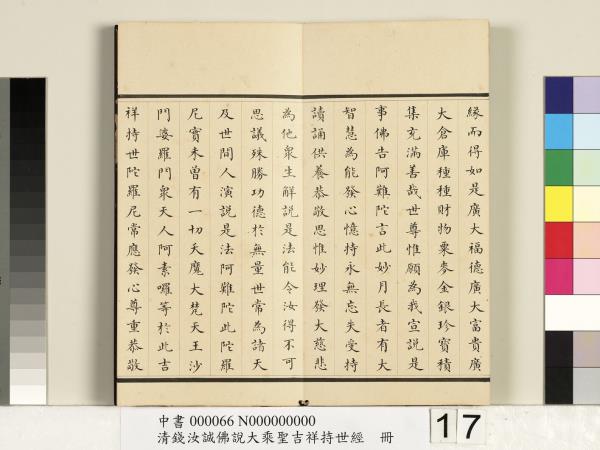 緣而得如是廣大福德廣大富貴廣
大倉庫種種財物粟麥金銀珍寶積
集充滿善哉世尊惟願為我宣說是
事佛告阿難陀言此妙月長者有大
智慧為能發心憶持永無忘失受持
讀誦供養恭敬思惟妙理發大慈悲
為他眾生解說是法能令汝得不可
思議殊勝功德於無量世常為諸天
及世間人演說是法阿難陀此陀羅
尼實未曾有一切天魔大梵天王沙
門婆羅門眾天人阿素囉等於此吉
祥持世陀羅尼常應發心尊重恭敬
中書 000066 N000000000
清錢汝誠佛說大乘聖吉祥持世經 冊
17